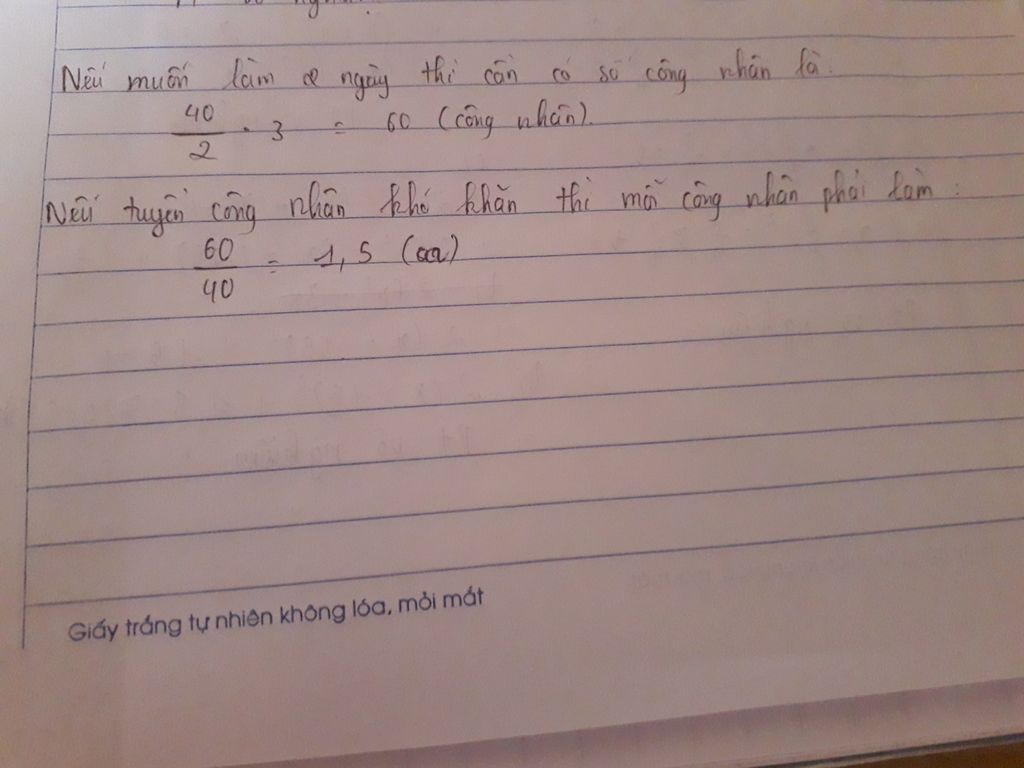 Nếu muốn làm 2 ngày thì cần có số công nhân là:
40/2 . 3 = 60 (công nhân).
Nếu tuyển công nhân khó khăn thì mỗi công nhân phải làm:
60/40 = 1,5 (ca)
Giấy trắng tự nhiên không lóa, mỏi mắt